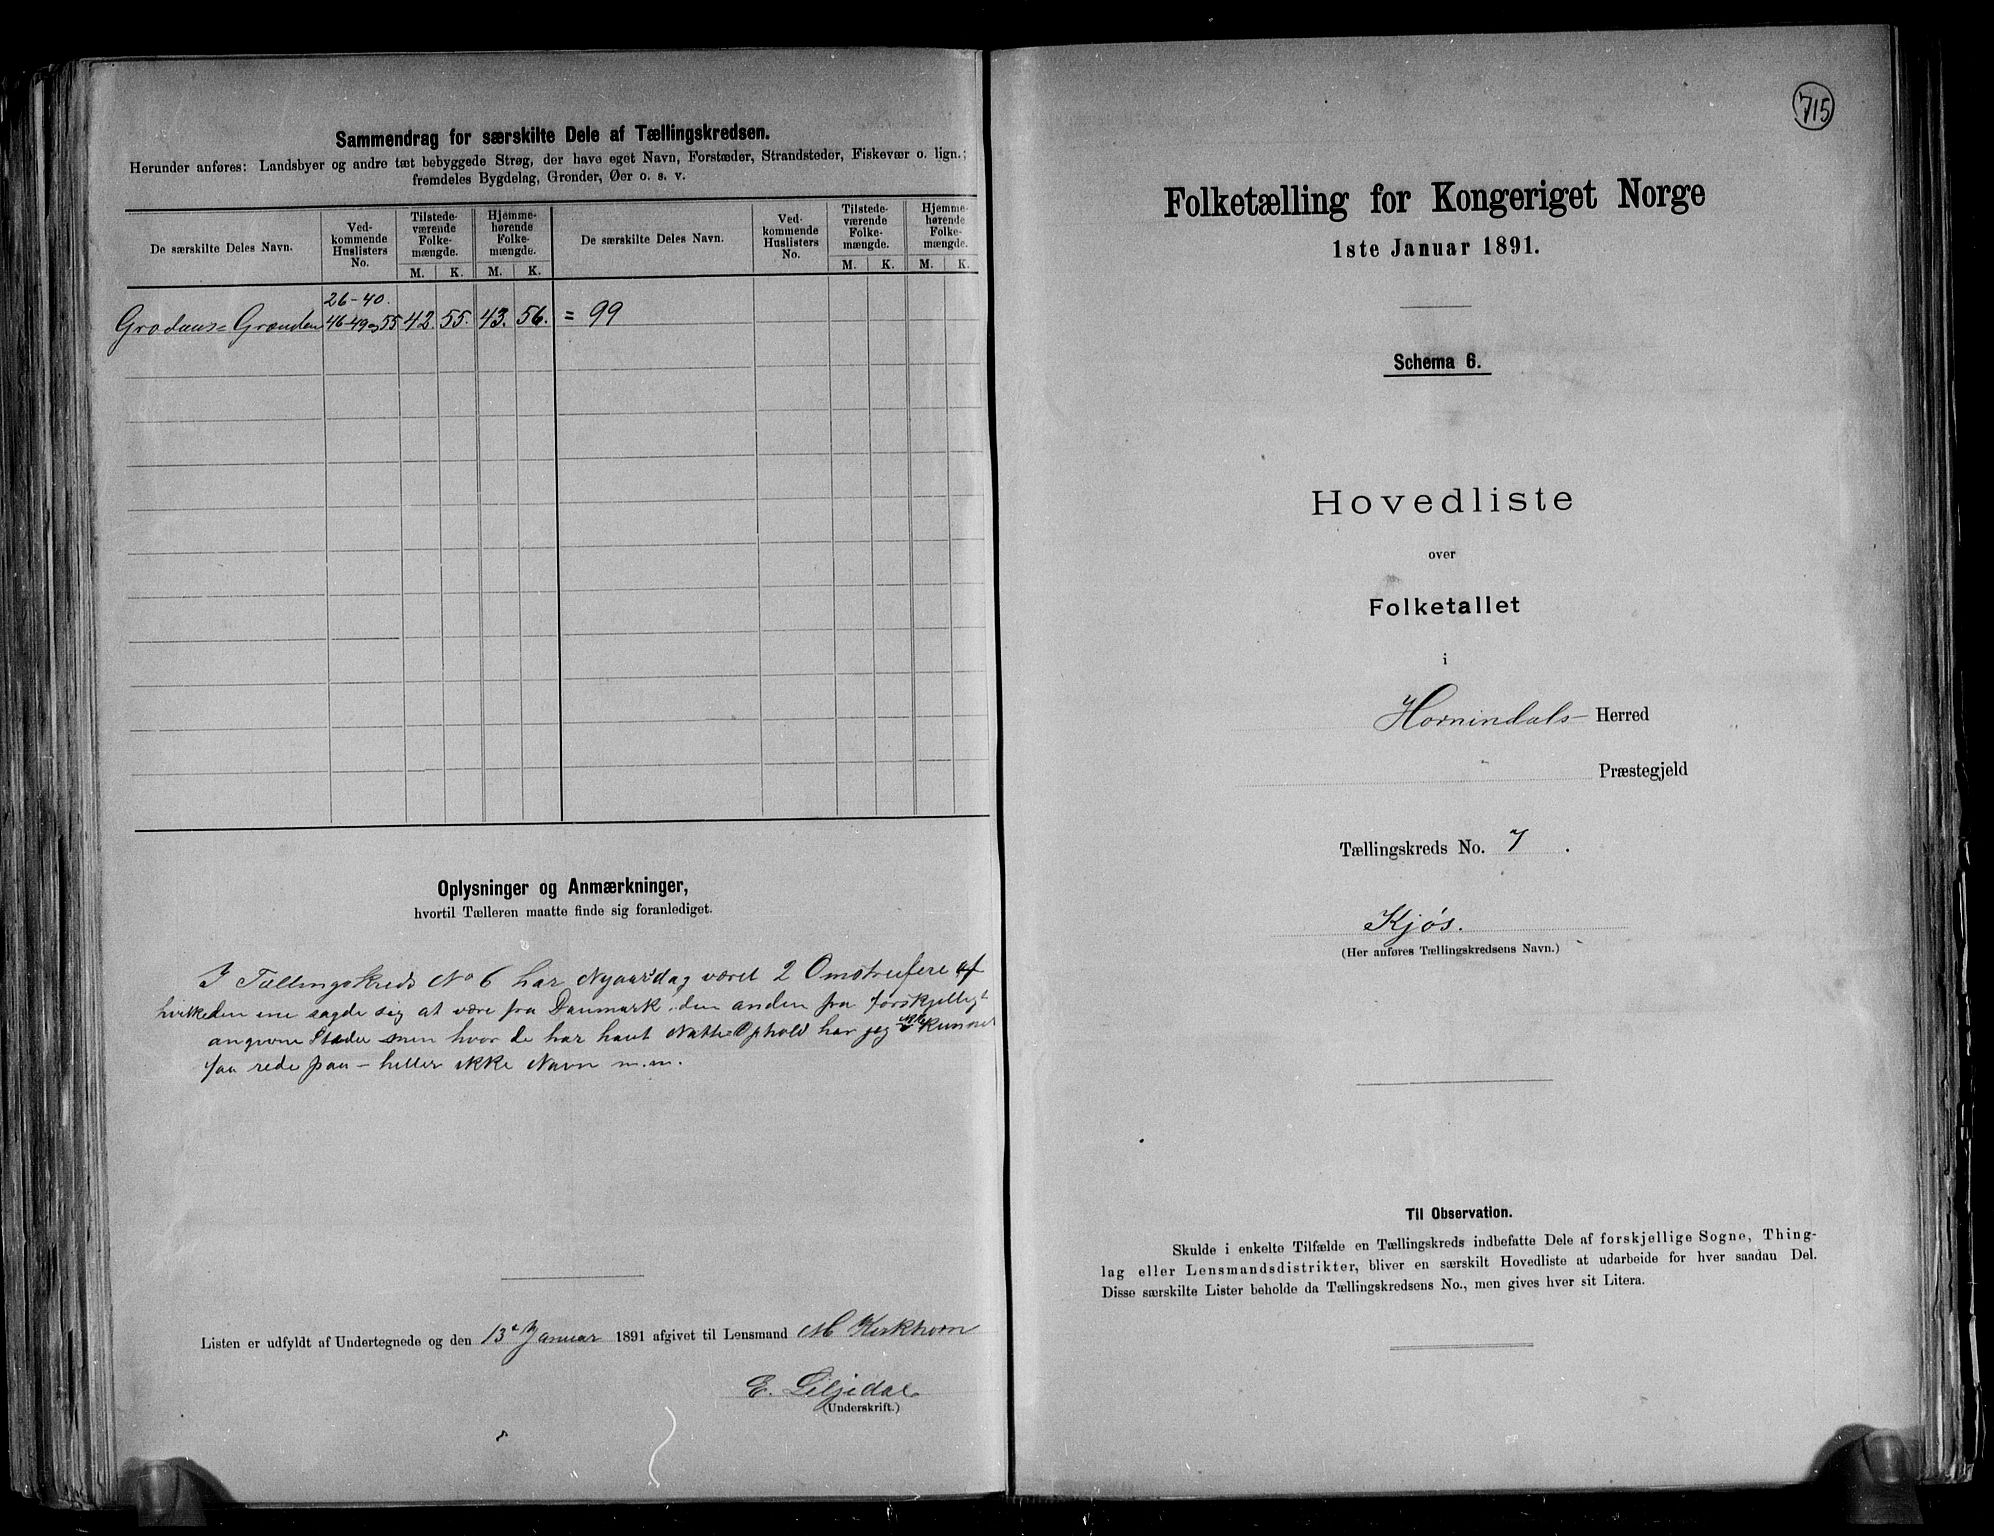 Sammendrag for særskilte Dele af Tællingskredsen.
Herunder anføres: Landsbyer og andre tæt bebyggede Strøg, der have eget Navn, Forstæder, Strandsteder, Fiskevær o. lign.;
fremdeles Bygdelag, Grender, Øer o. s. v.
De særskilte Deles Navn.
Ved-
kommende
Huslisters
No.
Tilstede-
værende
Folke-
mængde.
Hjemme-
hørende
Folke-
mængde.
De særskilte Deles Navn.
Ved-
kommende
Huslisters
No.
Tilstede-
værende
Folke-
mængde.
Hjemme-
hørende
Folke-
mængde.
M. K. M. K. M. K. M. K.
26-40.
Grodaas= Grænden 46-49 og 55 42. 55. 43. 56. = 99
Oplysninger og Anmærkninger,
hvortil Tælleren maatte finde sig foranlediget.
I Tællingskreds No 6 har Nyaarsdag været 2 Omstreifere af
hvilke den ene sagde sig at være fra Danmark, den anden fra forskjelligt
angivne Steder men hvor de har havt Natte Ophold har jeg ikke kunnet
faa rede paa - heller ikke Navn m.m.
Listen er udfyldt af Undertegnede og den 13de Januar 1891 afgivet til Lensmand M Kirkhorn
E. Liljedal
(Underskrift.)
715
Folketælling for Kongeriget Norge
1ste Januar 1891.
Schema 6.
Hovedliste
over
Folketallet
i
Hornindals Herred
Præstegjeld
Tællingskreds No. 7.
Kjøs.
(Her anføres Tællingskredsens Navn.)
Til Observation.
Skulde i enkelte Tilfælde en Tællingskreds indbefatte Dele af forskjellige Sogne, Thing-
lag eller Lensmandsdistrikter, bliver en særskilt Hovedliste at udarbeide for hver saadan Del.
Disse særskilte Lister beholde da Tællingskredsens No., men gives hver sit Litera.